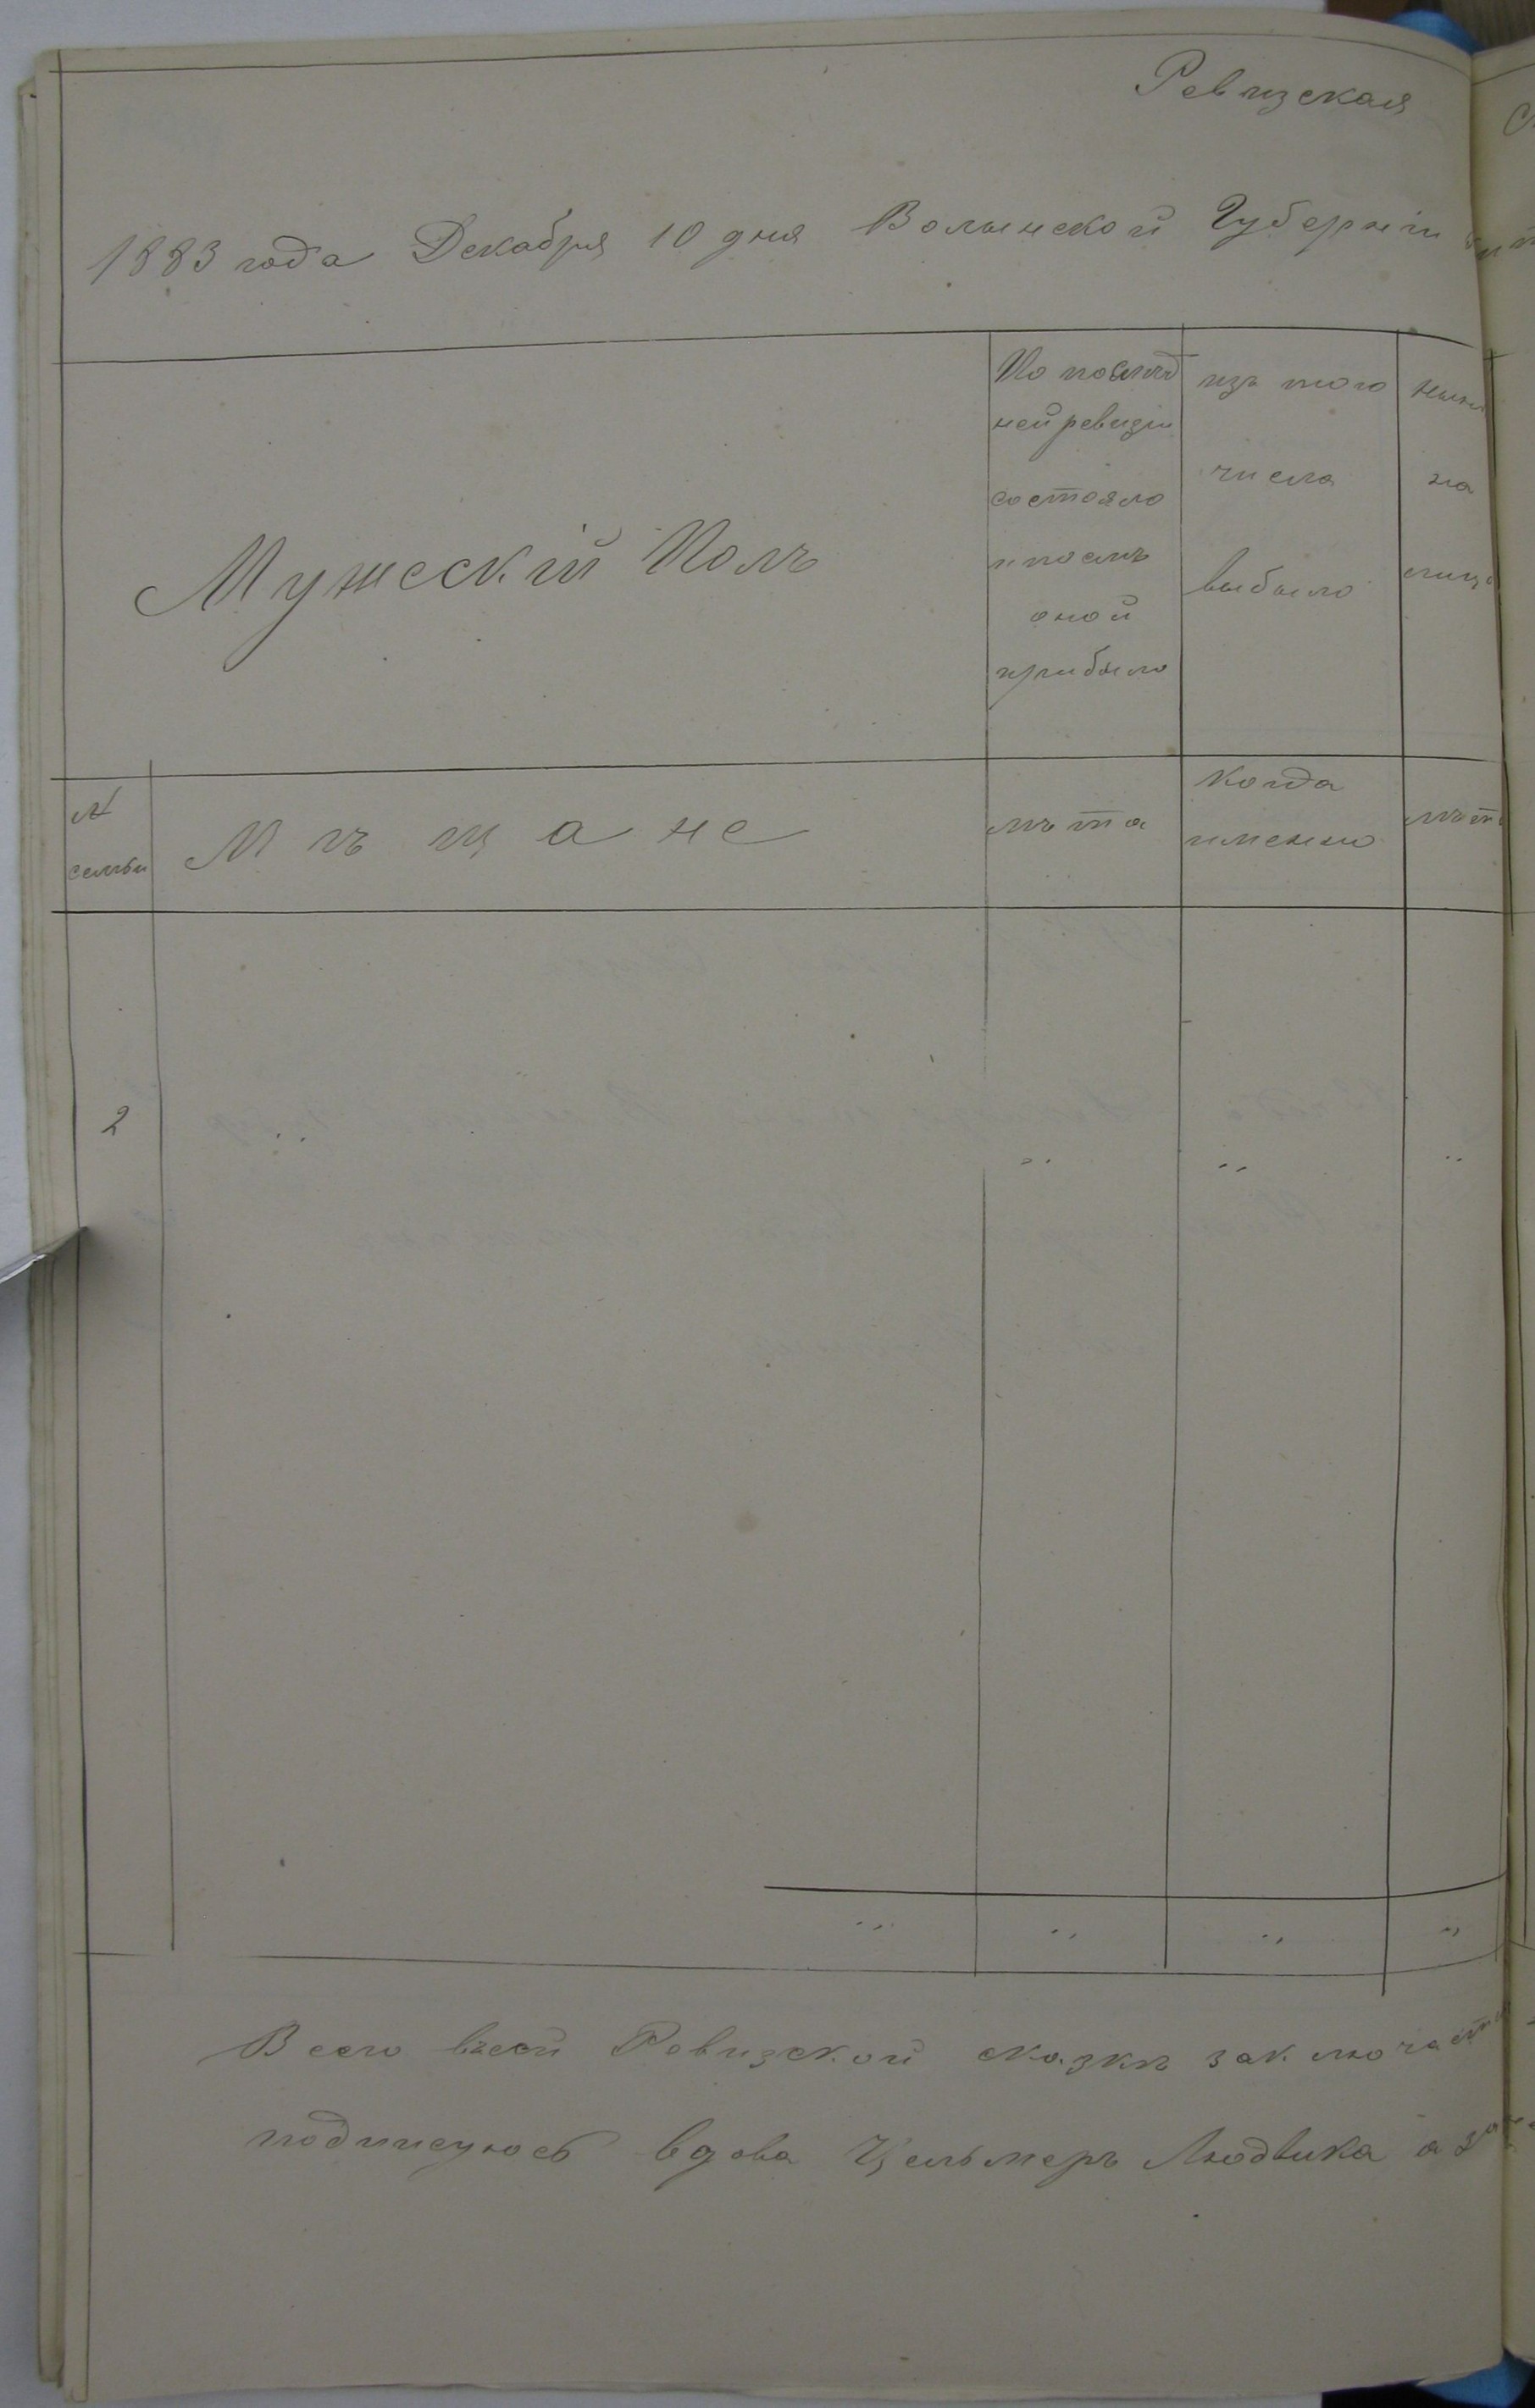 Ревизская
1883 года Декабря 10 дня Волынской Губерніи
Мужескій Полъ
По послѣд
ней ревизіи
состояло
и послѣ
оной
прибыло
изъ того
числа
выбыло
на
лицо
№
семьи
Мѣщане
лѣта
когда
именно
лѣта
2
Всего въсей Ревизской сказкѣ заключаетъ
подписуюсь вдова Цельмеръ Людвика а за